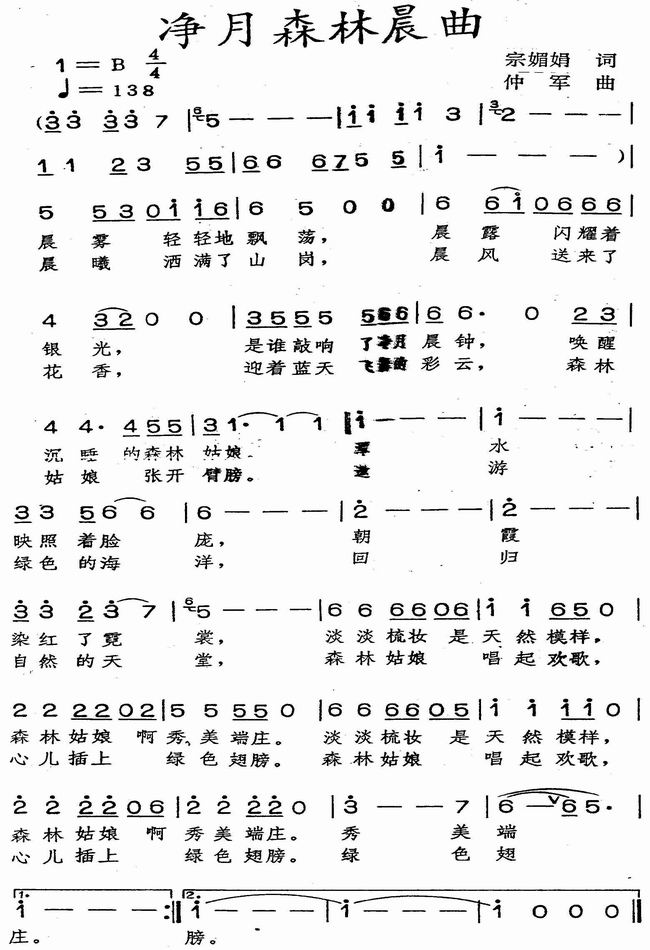 净月森林晨曲
1=B 4/4
宗媚娟 词
♩=138
仲军 曲
(3̇3̇ 3̇3̇ 7 | 5 - - - | 1̇1̇ 1̇1̇ 1̇ 3 | 2 - - - |
1 1 23 55 | 66 675 5 | 1̇ - - - ) |
5 530 1̇ 1̇6 | 6 5 0 0 | 6 61̇0666 |
晨雾 轻轻地飘荡, 晨露 闪耀着
晨曦 洒满了山岗, 晨风 送来了
4 320 0 | 3555 566 | 6 6· 0 23 |
银光, 是谁敲响了净月晨钟, 唤醒
花香, 迎着蓝天 彩云, 森林
4 4· 455 | 31· 1 1 ‖: 1̇ - - - | 1̇ - - - |
沉睡的森林姑娘。 潭 水
姑娘 张开臂膀。 遨 游
33 56 6 | 6 - - - | 2̇ - - - | 2̇ - - - |
映照着脸庞, 朝 霞
绿色的海洋, 回 归
3̇ 3̇ 2̇3̇ 7 | 5 - - - | 6 6 6606 | 1̇ 1̇ 650 |
染红了霓裳, 淡淡梳妆是天然模样,
自然的天堂, 森林姑娘 唱起欢歌,
2 2 2202 | 5 5 550 | 6 6 6605 | 1̇ 1̇ 1̇1̇0 |
森林姑娘啊秀美端庄。 淡淡梳妆是天然模样,
心儿插上 绿色翅膀。 森林姑娘 唱起欢歌,
2̇ 2̇ 2̇2̇06 | 2̇ 2̇ 2̇2̇0 | 3̇ - - 7 | 6 - 65· |
森林姑娘啊秀美端庄。秀 美端
心儿插上 绿色翅膀。绿 色翅
1. 1̇ - - - :‖ 2. 1̇ - - - | 1̇ - - - | 1̇ 0 0 0 ‖
庄。 膀。